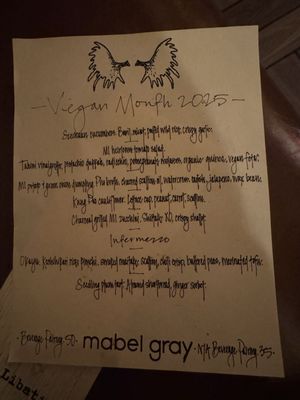 - Vegan Month 2025 -
Szechuan cucumbers. Basil, mint, puffed wild rice, crispy garlic.
MI heirloom tomato salad.
Tahini vinaigrette, pistachio, radicchio, pomegranate molasses, organic quinoa, vegan feta.
MI potato + green onion dumpling. Pho broth, charred scallion oil, watermelon radish, jalapeno, wax bean.
Kung Pao cauliflower. Lettuce cup, peanut, carrot, scallion.
Charcoal grilled MI zucchini. Shiitake XO, crispy shallot.
Intermezzo
Koshihikari rice porridge, smoked maitake, scallion, chili crisp, buttered peas, marinated tofu.
Seedling plum tart. Almond shortbread, ginger sorbet.
· Beverage Pairing 50 · mabel gray · N/A Beverage Pairing 35 ·
Libati